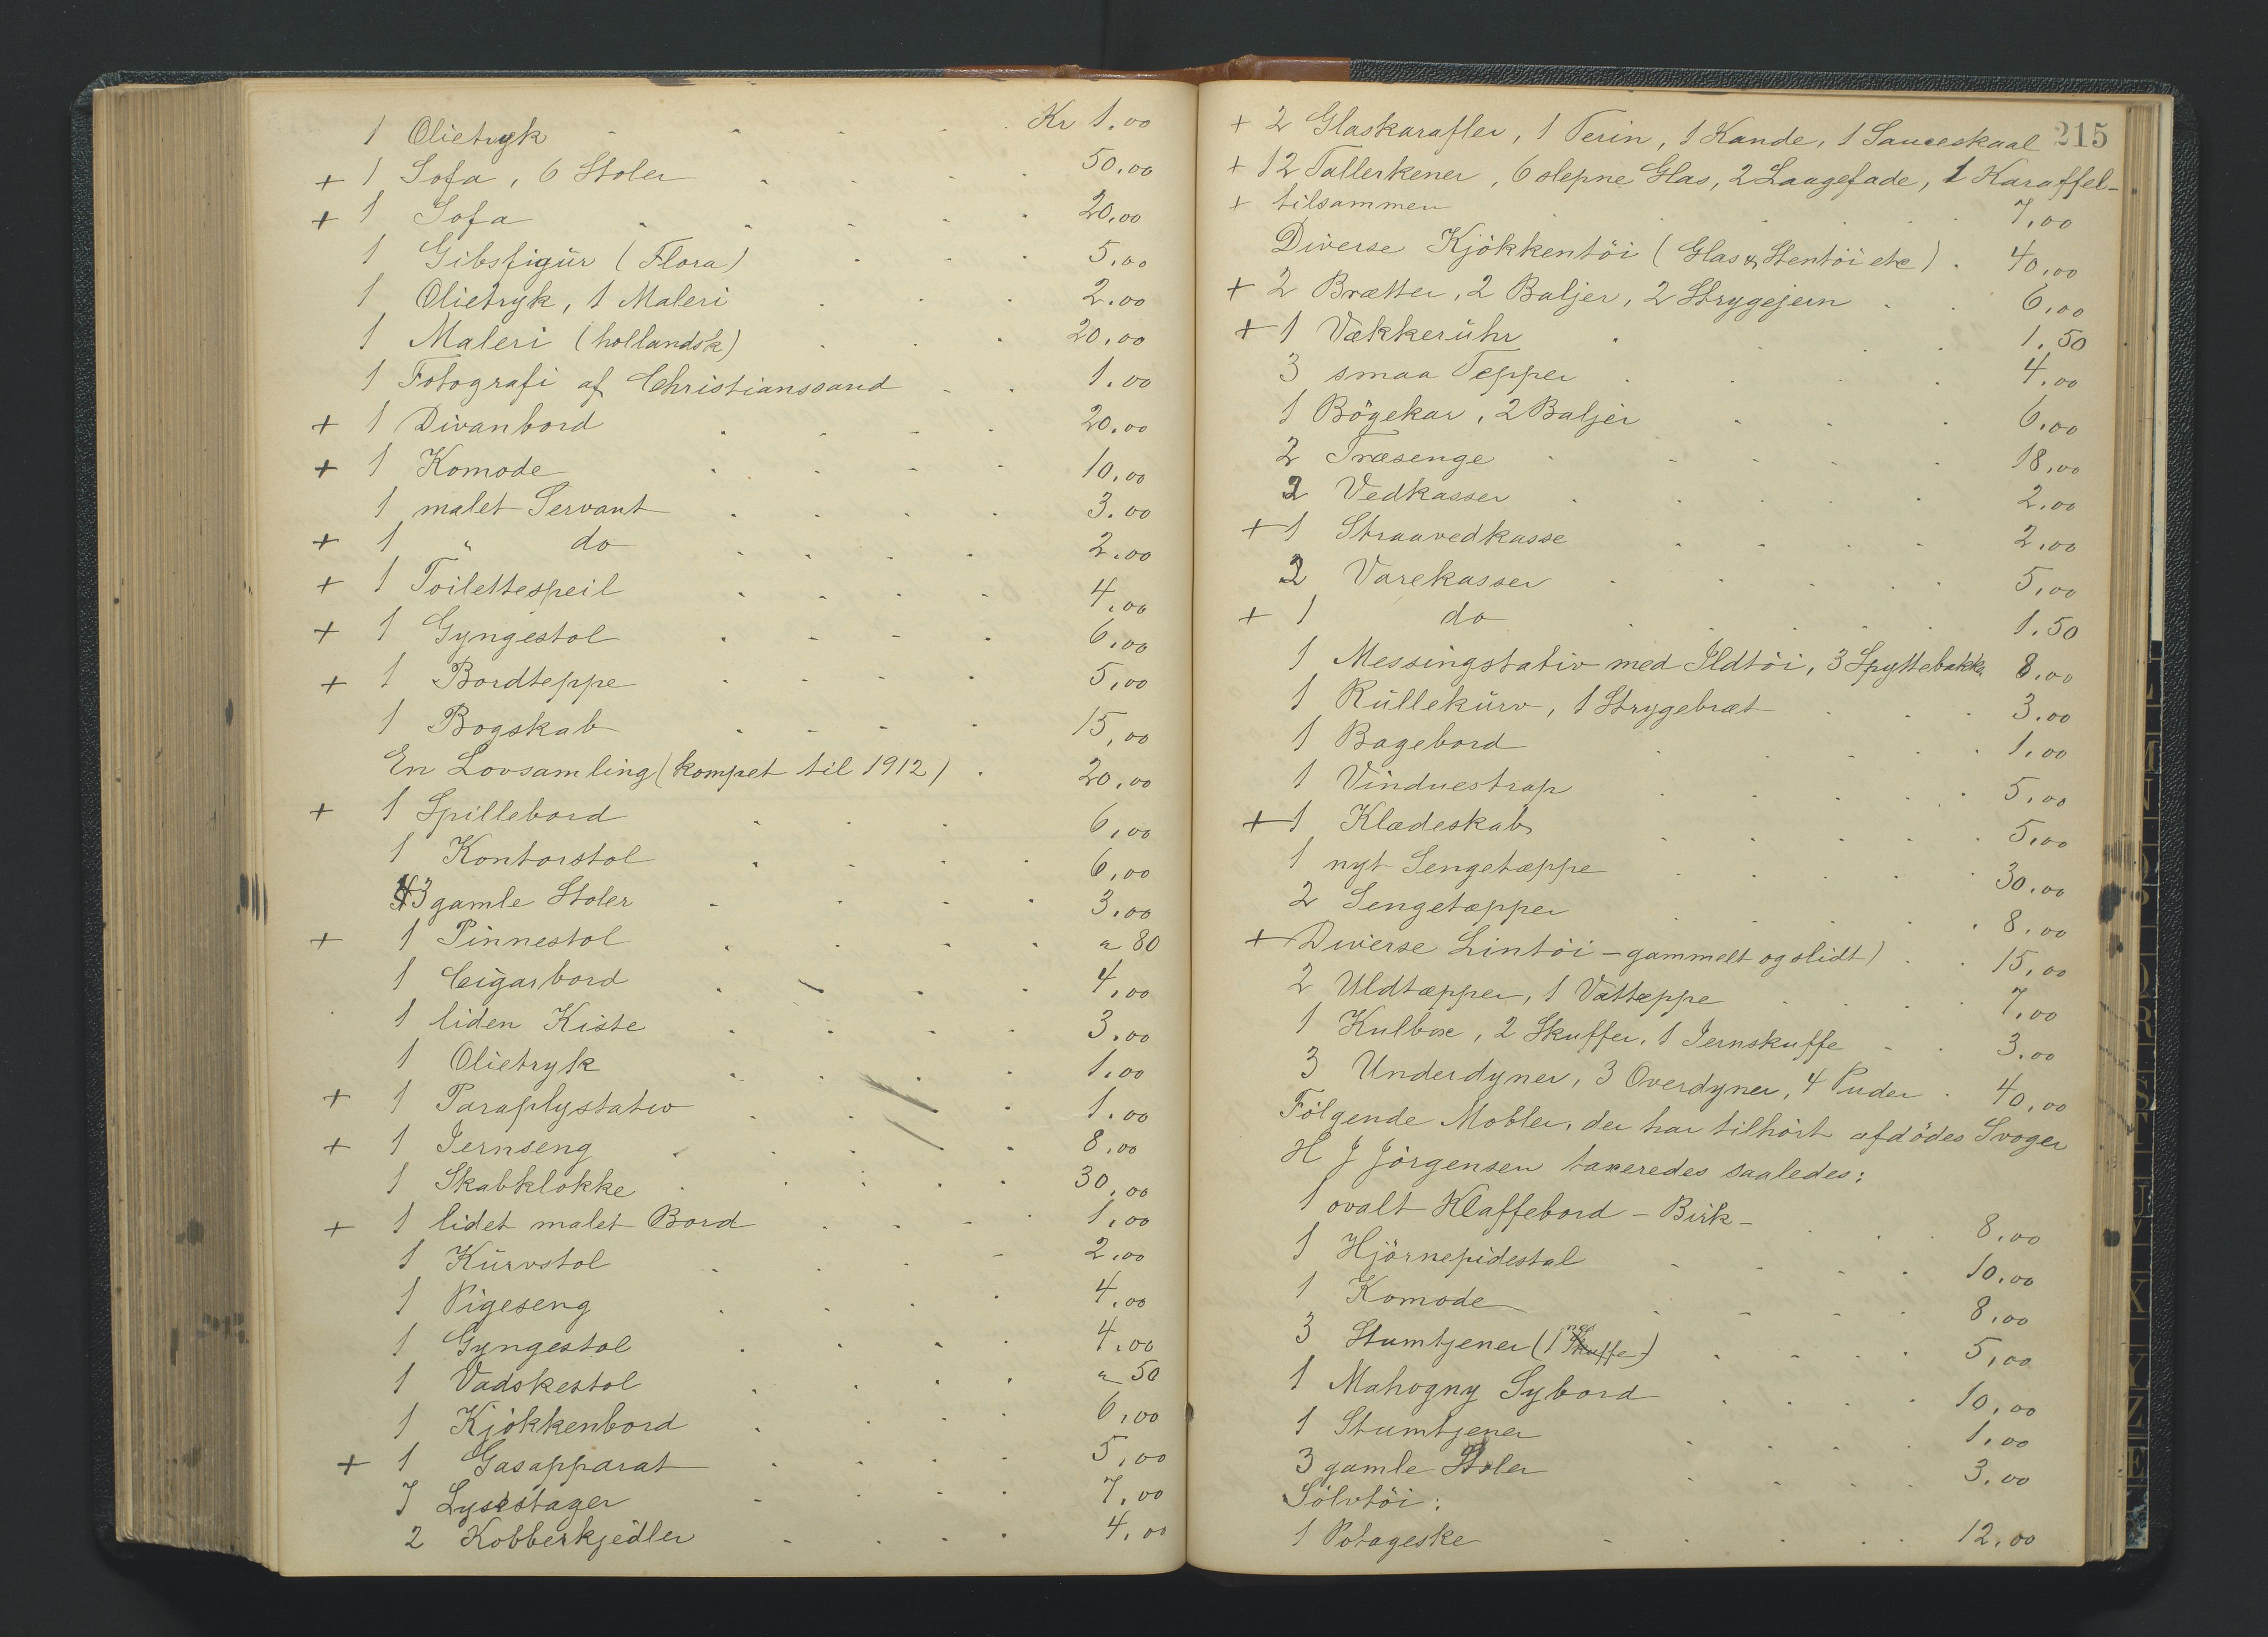 1 Olietryk Kr 1.00
+ 1 Sofa, 6 Stoler 50,00
+ 1 Sofa 20,00
1 Gibsfigur (Flora) 5,00
1 Olietryk, 1 Maleri 2.00
1 Maleri (hollandsk) 20,00
1 Fotografi af Christianssand 1.00
+ 1 Divanbord 20,00
+ 1 Komode 10,00
1 malet Servant 3.00
+ 1 " do 2.00
+ 1 Toilettespeil 4,00
+ 1 Gyngestol 6,00
+ 1 Bordteppe 5,00
1 Bogskab 15,00
En Lovsamling (kompet til 1912) 20,00
+ 1 Spillebord 6,00
1 Kontorstol 6,00
3 gamle Stoler 3,00
+ 1 Pinnestol " 80
1 Cigarbord 4,00
1 liden Kiste 3,00
1 Olietryk 1.00
+ 1 Paraplystativ 1.00
+ 1 Jernseng 8,00
1 Skabklokke 30,00
+ 1 lidet malet Bord 1,00
1 Kurvstol 2,00
1 Pigeseng 4,00
1 Gyngestol 4,00
1 Vadskestol " 50
1 Kjökkenbord 6,00
+ 1 Gasapparat 5,00
7 Lysestager 7,00
2 Kobberkjedler 4,00
215
+ 2 Glaskarafler, 1 Terin, 1 Kande, 1 Sauceskaal
+ 12 Tallerkener, 6 slepne Glas, 2 Laagefade, 1 Karaffel-
+ tilsammen 7,00
Diverse Kjökkentöi (Glas & Stentöi etc) 40,00
+ 2 Brætter, 2 Baljer, 2 Strygejern 6,00
+ 1 Vækkeruhr 1.50
3 smaa Tepper 4,00
1 Bögekar, 2 Baljer 6,00
2 Træsenge 18,00
2 Vedkasser 2,00
+ 1 Straavedkasse 2,00
2 Varekasser 5,00
+ 1 do 1.50
1 Messingstativ med Ildtöi, 3 Spyttebakker 8,00
1 Rullekurv, 1 Strygebræt 3,00
1 Bagebord 1,00
1 Vinduestrap 5,00
+ 1 Klædeskab 5,00
1 nyt Sengetæppe 30,00
2 Sengetæpper 8,00
+ Diverse Lintöi - gammelt og slidt) 15,00
2 Uldtæpper, 1 Vattæppe 7,00
1 Kulbox, 2 Skuffer, 1 Jernskuffe 3,00
3 Underdyner, 3 Overdyner, 4 Puder 40,00
Fölgende Mobler, der har tilhört afdödes Svoger
H J Jörgensen taxeredes saaledes:
1 ovalt Klaffebord - Birk - 8,00
1 Hjörnepidestal 10,00
1 Komode 8,00
3 Stumtjener (1 Skuffe) 5,00
1 Mahogny Sybord 10,00
1 Stumtjener 1,00
3 gamle Stoler 3,00
Sölvtöi:
1 Potageske 12,00